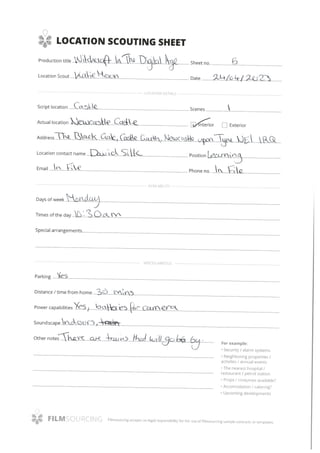 LOCATION SCOUTING SHEET
Production title Witchcraft In The Digital Age Sheet no. 6
Location Scout Katie Moon Date 24/04/2023
LOCATION DETAILS
Script location Castle Scenes 1
Actual location Newcastle Castle Interior Exterior
Address The Black Gate, Castle Garth, Newcastle upon Tyne NE1 1RQ
Location contact name David Silk Position Learning
Email In File Phone no. In File
AVAILABILITY
Days of week Monday
Times of the day 10:30am
Special arrangements
Parking Yes
Distance / time from home 30 mins
Power capabilities Yes, batteries for camera
Soundscape Indoors, train
Other notes There are trains that will go by
For example:
• Security / alarm systems
• Neighboring properties / activities / annual events
• The nearest hospital / restaurant / petrol station
• Props / costumes available?
• Accomodation / catering?
• Upcoming developments
FILMSOURCING